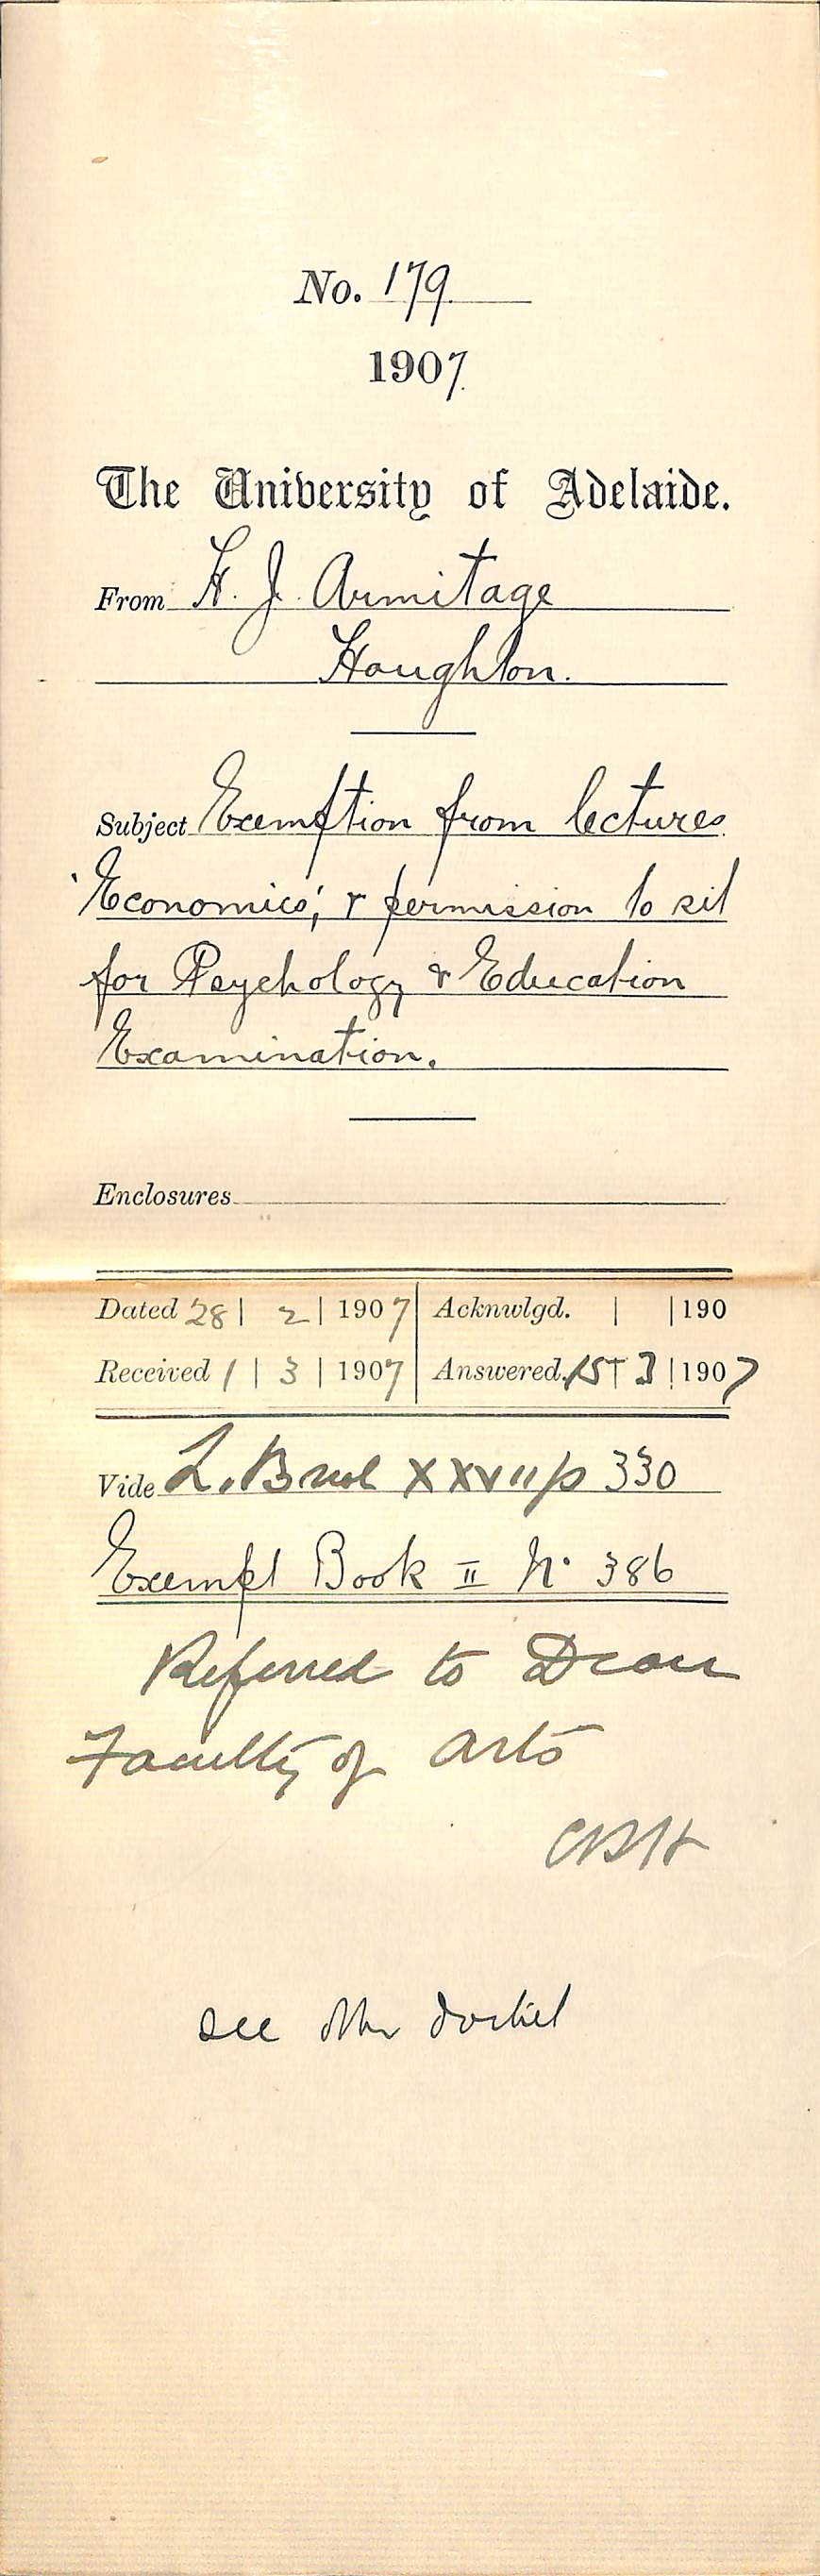 No. 179
1907
The University of Adelaide.
From H. J. Armitage
Houghton.
Subject Exemption from lectures
'Economics', & permission to sit
for Psychology & Education
Examination.
Enclosures
Dated 28 | 2 | 1907 Acknwlgd. | | 190
Received 1 | 3 | 1907 Answered. 15 | 3 | 1907
Vide L. B XXVII p 330
Exempt Book II No 386
Referred to Dean
Faculty of Arts
see other docket